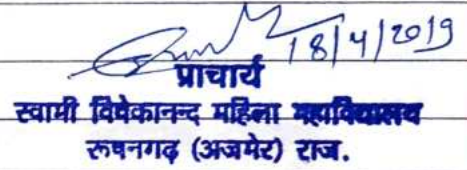 18/4/2019
प्राचार्य
स्वामी विवेकानन्द महिला महाविद्यालय
रूपनगढ़ (अजमेर) राज.